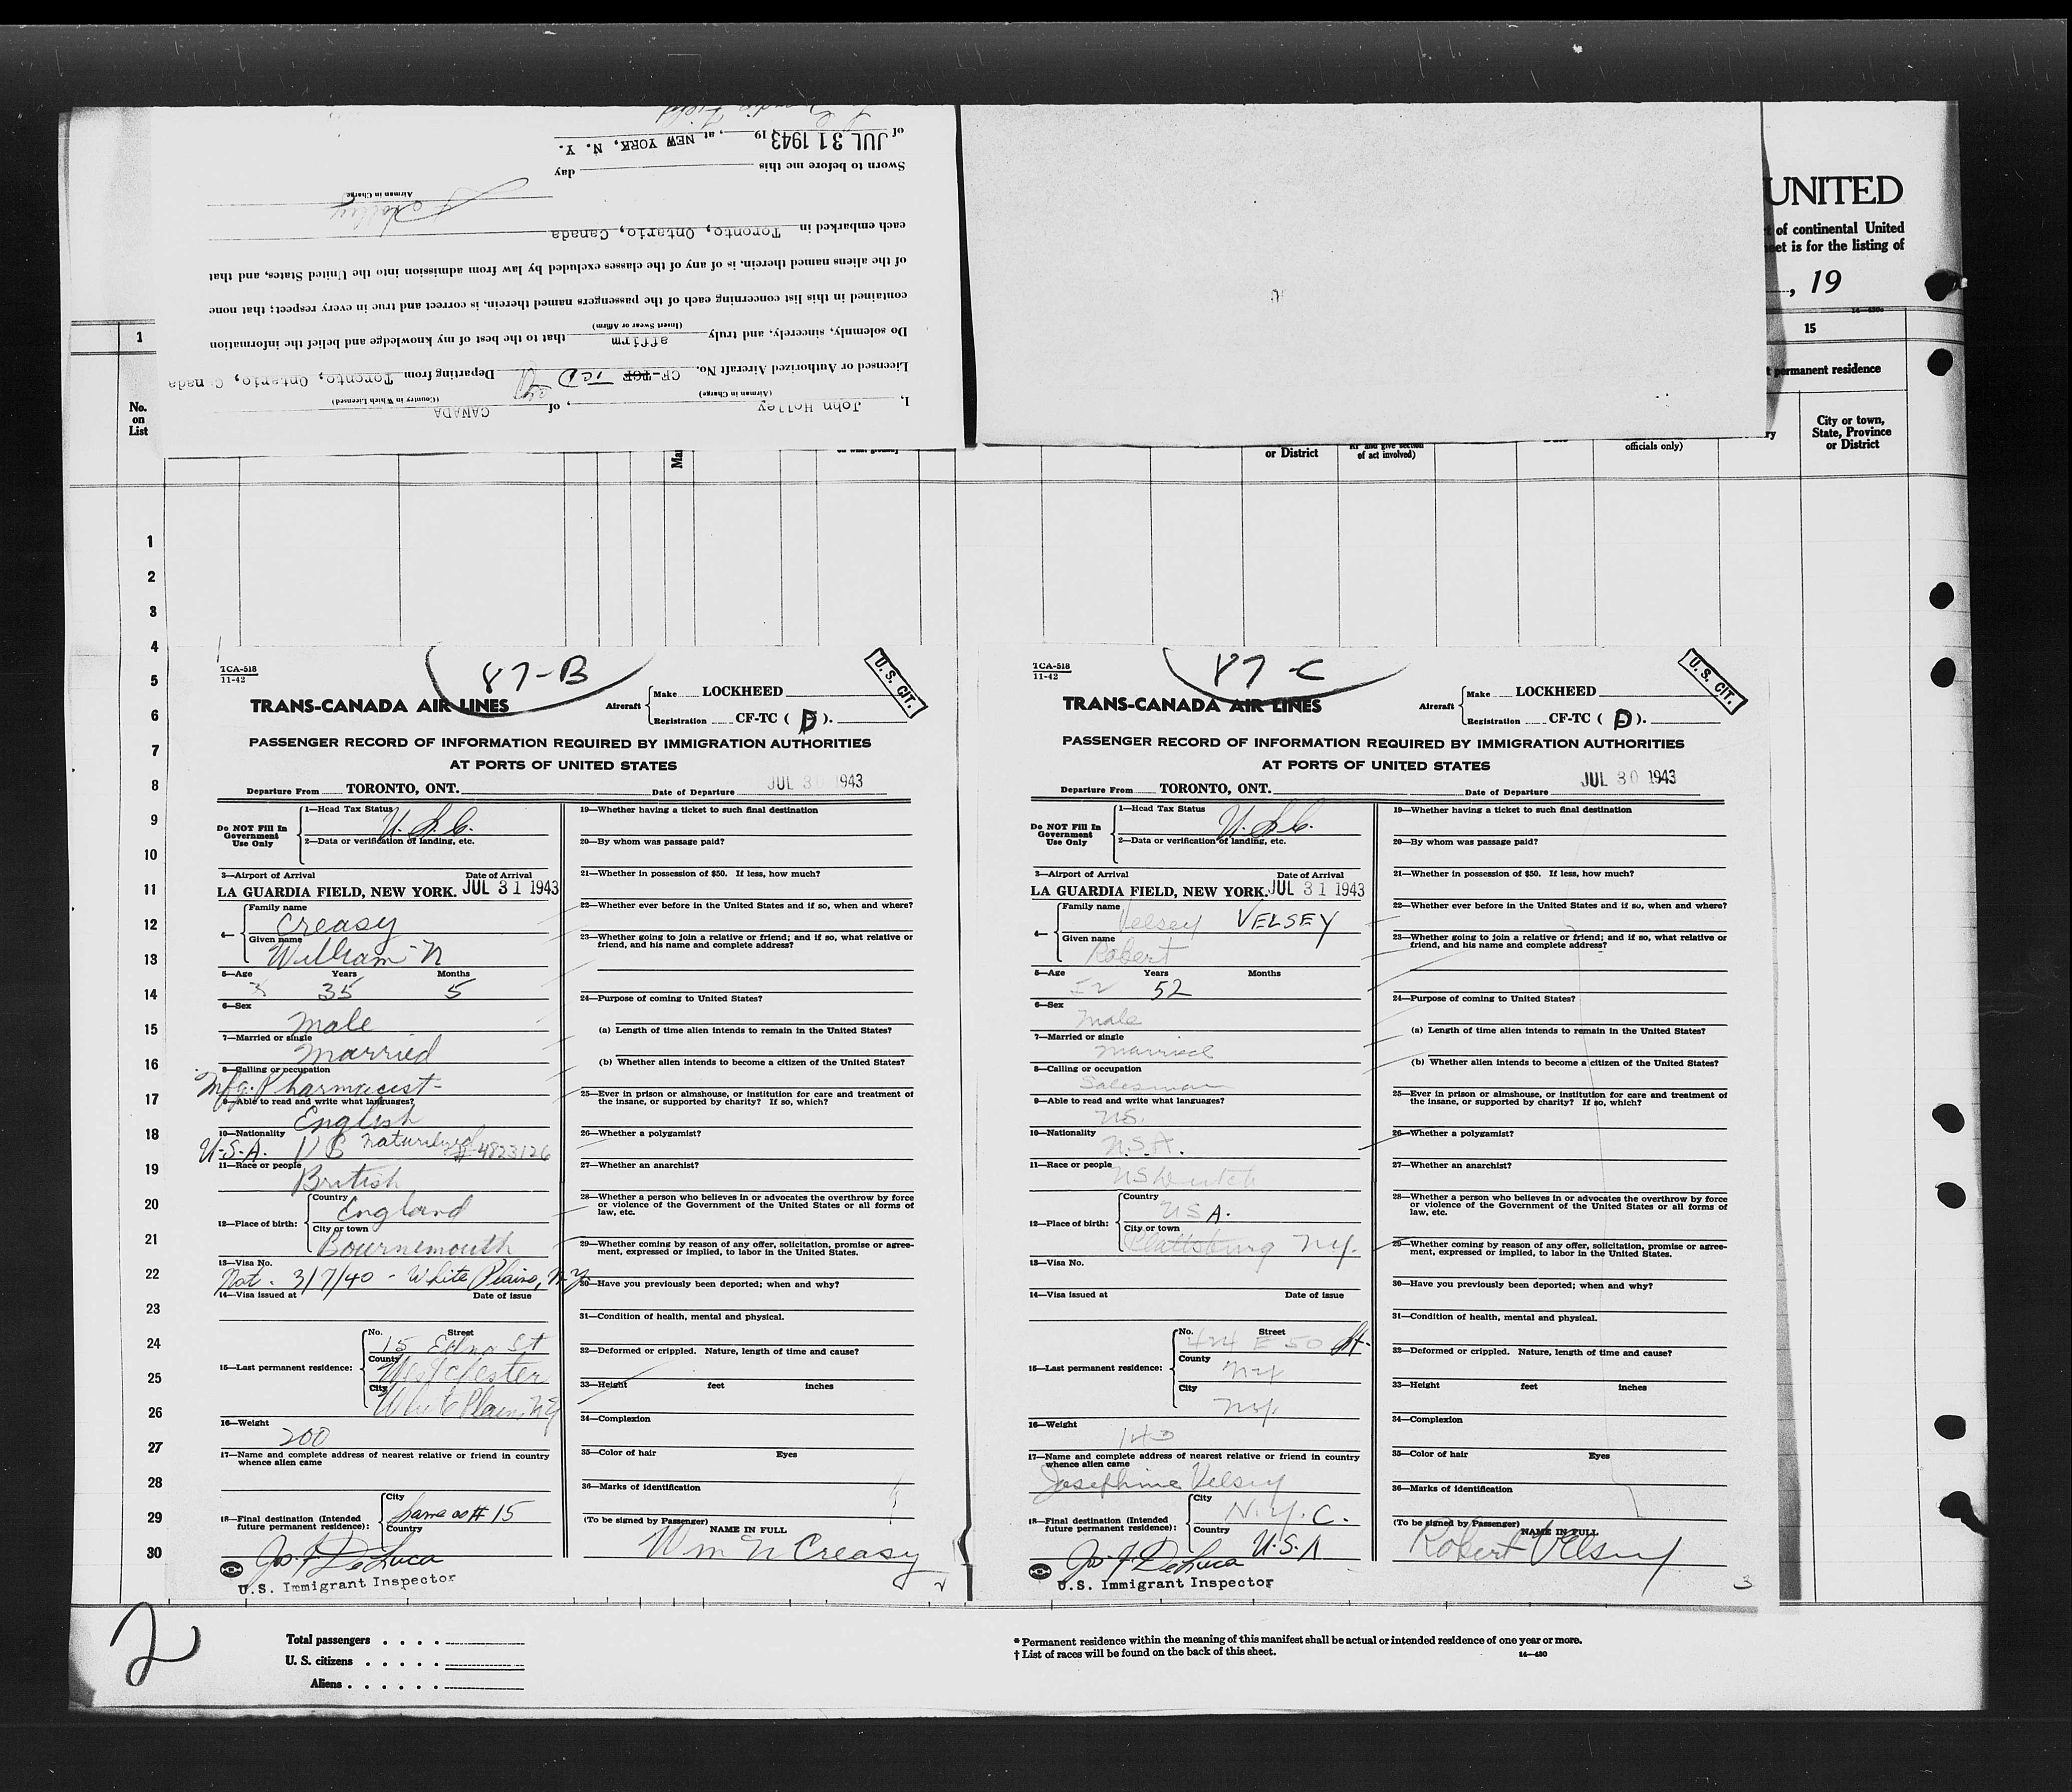 La Guardia Field
of JUL 31 1943, 19, at NEW YORK, N. Y.
Sworn to before me this day
Airman in Charge
J Holley
each embarked in Toronto, Ontario, Canada
of the aliens named therein, is of any of the classes excluded by law from admission into the United States, and that
contained in this list concerning each of the passengers named therein, is correct and true in every respect; that none
(Insert Swear or Affirm)
Do solemnly, sincerely, and truly affirm that to the best of my knowledge and belief the information
Licensed or Authorized Aircraft No. CF-TCF TCD Departing from Toronto, Ontario, Canada
(Airman in Charge) (Country in Which Licensed)
I, John Holley, of CANADA
UNITED
of continental United
eet is for the listing of
, 19
1
15
permanent residence
No.
on
List
City or town,
State, Province
or District
or District
RP and give section
of act involved)
officials only)
1
2
3
4
5
6
7
8
9
10
11
12
13
14
15
16
17
18
19
20
21
22
23
24
25
26
27
28
29
30
TCA-518
11-42
87-B
U.S. CIT.
TRANS-CANADA AIR LINES
Aircraft
Make LOCKHEED
Registration CF-TC ( D ).
PASSENGER RECORD OF INFORMATION REQUIRED BY IMMIGRATION AUTHORITIES
AT PORTS OF UNITED STATES
Departure From TORONTO, ONT. Date of Departure JUL 30 1943
Do NOT Fill In
Government
Use Only
1—Head Tax Status
U.S.C.
2—Data or verification of landing, etc.
3—Airport of Arrival Date of Arrival
LA GUARDIA FIELD, NEW YORK. JUL 31 1943
4—
Family name
Creasy
Given name
William N
5—Age Years Months
35 5
6—Sex
Male
7—Married or single
Married
8—Calling or occupation
Mfg. Pharmacist
9—Able to read and write what languages?
English
10—Nationality
U.S.A. US naturalized # 4823126
11—Race or people
British
12—Place of birth:
Country
England
City or town
Bournemouth
13—Visa No.
Nat. 3/7/40 - White Plains, N.Y
14—Visa issued at Date of issue
15—Last permanent residence:
No. Street
15 Edna St
County
Westchester
City
White Plains NY
16—Weight
200
17—Name and complete address of nearest relative or friend in country
whence alien came
18—Final destination (Intended
future permanent residence):
City
Same as # 15
Country
Jos. F. DeLuca
U.S. Immigrant Inspector
19—Whether having a ticket to such final destination
20—By whom was passage paid?
21—Whether in possession of $50. If less, how much?
22—Whether ever before in the United States and if so, when and where?
23—Whether going to join a relative or friend; and if so, what relative or
friend, and his name and complete address?
24—Purpose of coming to United States?
(a) Length of time alien intends to remain in the United States?
(b) Whether alien intends to become a citizen of the United States?
25—Ever in prison or almshouse, or institution for care and treatment of
the insane, or supported by charity? If so, which?
26—Whether a polygamist?
27—Whether an anarchist?
28—Whether a person who believes in or advocates the overthrow by force
or violence of the Government of the United States or all forms of
law, etc.
29—Whether coming by reason of any offer, solicitation, promise or agree-
ment, expressed or implied, to labor in the United States.
30—Have you previously been deported; when and why?
31—Condition of health, mental and physical.
32—Deformed or crippled. Nature, length of time and cause?
33—Height feet inches
34—Complexion
35—Color of hair Eyes
36—Marks of identification
(To be signed by Passenger)
NAME IN FULL
Wm N Creasy
2
TCA-518
11-42
87-C
U.S. CIT.
TRANS-CANADA AIR LINES
Aircraft
Make LOCKHEED
Registration CF-TC ( D ).
PASSENGER RECORD OF INFORMATION REQUIRED BY IMMIGRATION AUTHORITIES
AT PORTS OF UNITED STATES
Departure From TORONTO, ONT. Date of Departure JUL 30 1943
Do NOT Fill In
Government
Use Only
1—Head Tax Status
U.S.C.
2—Data or verification of landing, etc.
3—Airport of Arrival Date of Arrival
LA GUARDIA FIELD, NEW YORK. JUL 31 1943
4—
Family name
Velsey VELSEY
Given name
Robert
5—Age Years Months
52 52
6—Sex
Male
7—Married or single
Married
8—Calling or occupation
Salesman
9—Able to read and write what languages?
US.
10—Nationality
U.S.A.
11—Race or people
US Dutch
12—Place of birth:
Country
USA.
City or town
Plattsburg N.Y.
13—Visa No.
14—Visa issued at Date of issue
15—Last permanent residence:
No. Street
424 E 50 St.
County
NY
City
N.Y.
16—Weight
140
17—Name and complete address of nearest relative or friend in country
whence alien came
Josephine Velsey
18—Final destination (Intended
future permanent residence):
City
N.Y.C.
Country
U.S.A
Jos. F. DeLuca
U.S. Immigrant Inspector
19—Whether having a ticket to such final destination
20—By whom was passage paid?
21—Whether in possession of $50. If less, how much?
22—Whether ever before in the United States and if so, when and where?
23—Whether going to join a relative or friend; and if so, what relative or
friend, and his name and complete address?
24—Purpose of coming to United States?
(a) Length of time alien intends to remain in the United States?
(b) Whether alien intends to become a citizen of the United States?
25—Ever in prison or almshouse, or institution for care and treatment of
the insane, or supported by charity? If so, which?
26—Whether a polygamist?
27—Whether an anarchist?
28—Whether a person who believes in or advocates the overthrow by force
or violence of the Government of the United States or all forms of
law, etc.
29—Whether coming by reason of any offer, solicitation, promise or agree-
ment, expressed or implied, to labor in the United States.
30—Have you previously been deported; when and why?
31—Condition of health, mental and physical.
32—Deformed or crippled. Nature, length of time and cause?
33—Height feet inches
34—Complexion
35—Color of hair Eyes
36—Marks of identification
(To be signed by Passenger)
NAME IN FULL
Robert Velsey
3
2
Total passengers . . . .
U. S. citizens . . . . .
Aliens . . . . . .
* Permanent residence within the meaning of this manifest shall be actual or intended residence of one year or more.
† List of races will be found on the back of this sheet.
14—430